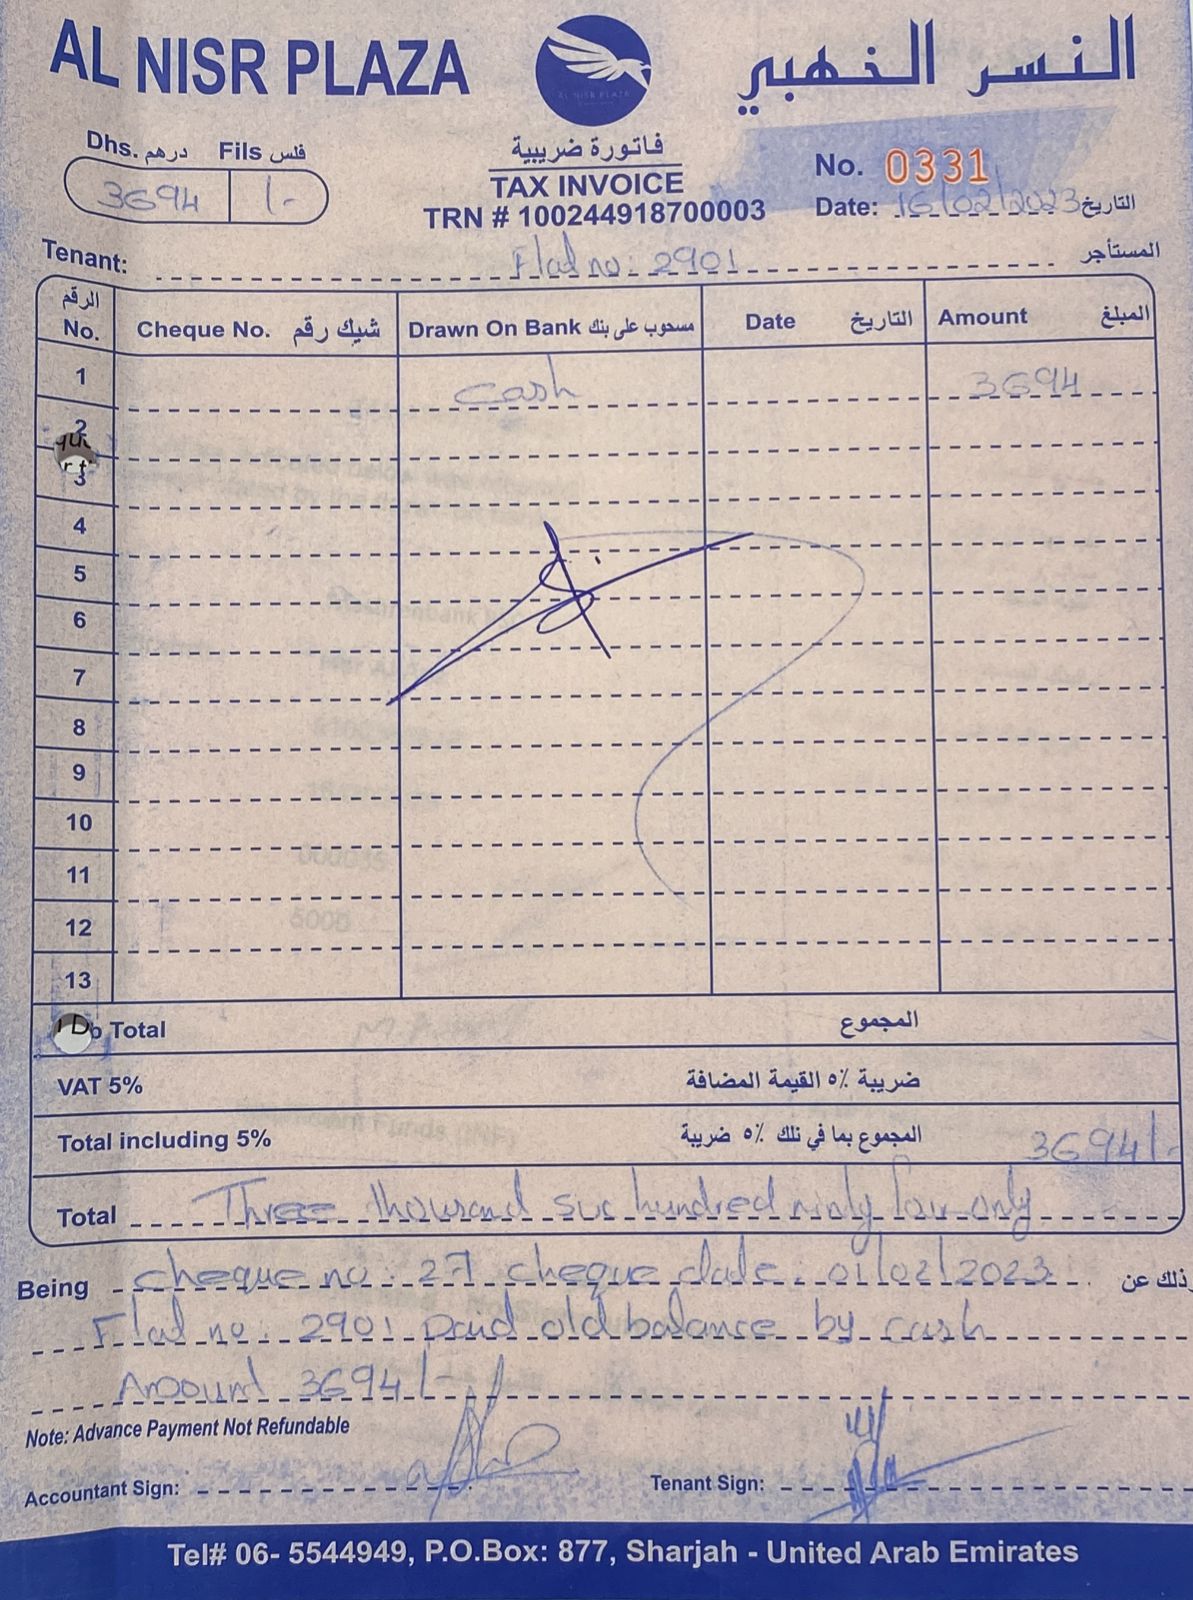 AL NISR PLAZA
النسر الذهبي
AL NISR PLAZA
Dhs. درهم Fils فلس
3694 1/-
فاتورة ضريبية
TAX INVOICE
TRN # 100244918700003
No. 0331
Date: 16/02/2023 التاريخ
Tenant: Flat no: 2901 المستأجر
الرقم
No. Cheque No. شيك رقم Drawn On Bank مسحوب على بنك Date التاريخ Amount المبلغ
1 cash 3694
2
3
4
5
6
7
8
9
10
11
12
13
Total المجموع
VAT 5% ضريبة ٥٪ القيمة المضافة
Total including 5% المجموع بما في تلك ٥٪ ضريبة 3694/-
Total Three thousand six hundred ninty four only
Being cheque no: 27 cheque date: 01/02/2023 وذلك عن
Flat no: 2901 paid old balance by cash
Amount 3694/-
Note: Advance Payment Not Refundable
Accountant Sign: Tenant Sign:
Tel# 06- 5544949, P.O.Box: 877, Sharjah - United Arab Emirates